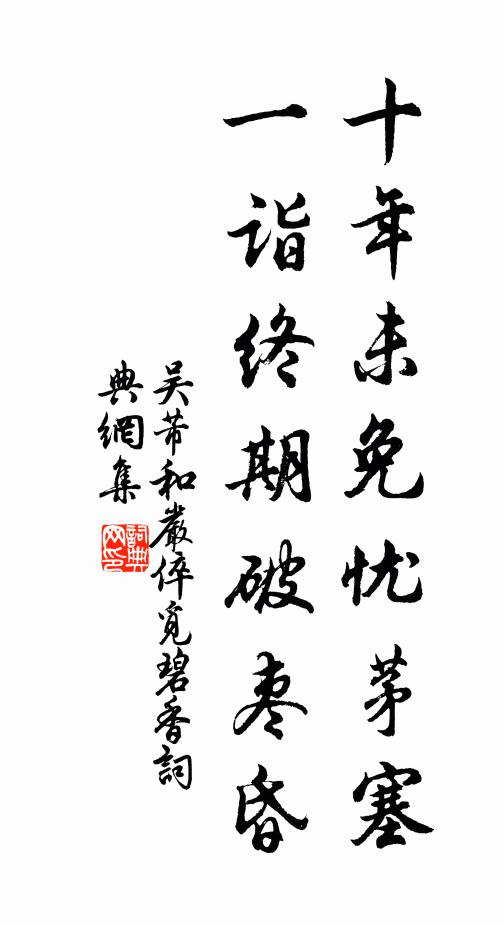 十年未免忧茅塞
一诣终期破枣昏
吴芾和嚴倅覓碧香詞
典網集
詞典網印